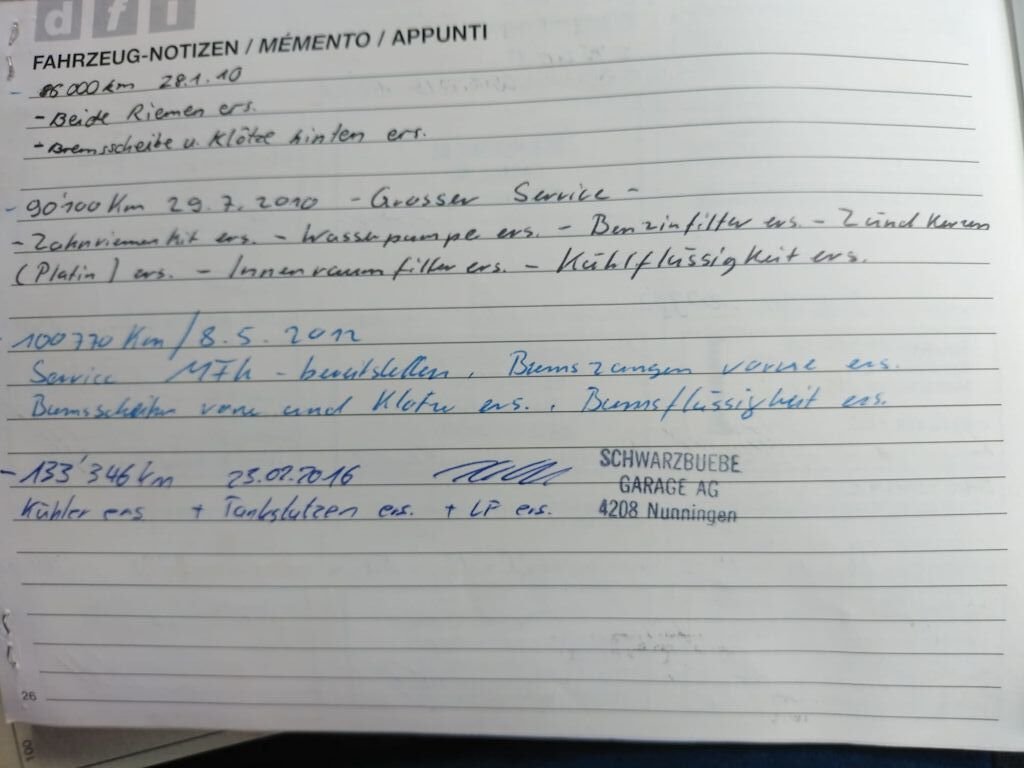 dfi
FAHRZEUG-NOTIZEN / MÉMENTO / APPUNTI
- 000 km 28.1.10
- Beide Riemen ers.
- Bremsscheibe u. Klötze hinten ers.
- 90'100 Km 29.7.2010 - Grosser Service -
- Zahnriemenkit ers. - Wasserpumpe ers. - Benzinfilter ers. - Zündkerzen
(Platin) ers. - Innenraumfilter ers. - Kühlflüssigkeit ers.
100770 Km / 8.5.2012
Service MFK - bereitstellen, Bremszangen vorne ers.
Bremsscheiben vorne und Klötze ers., Bremsflüssigkeit ers.
- 133'346 km 23.02.2016
SCHWARZBUEBE
GARAGE AG
4208 Nunningen
Kühler ers. + Tankstutzen ers. + LF ers.
26
100